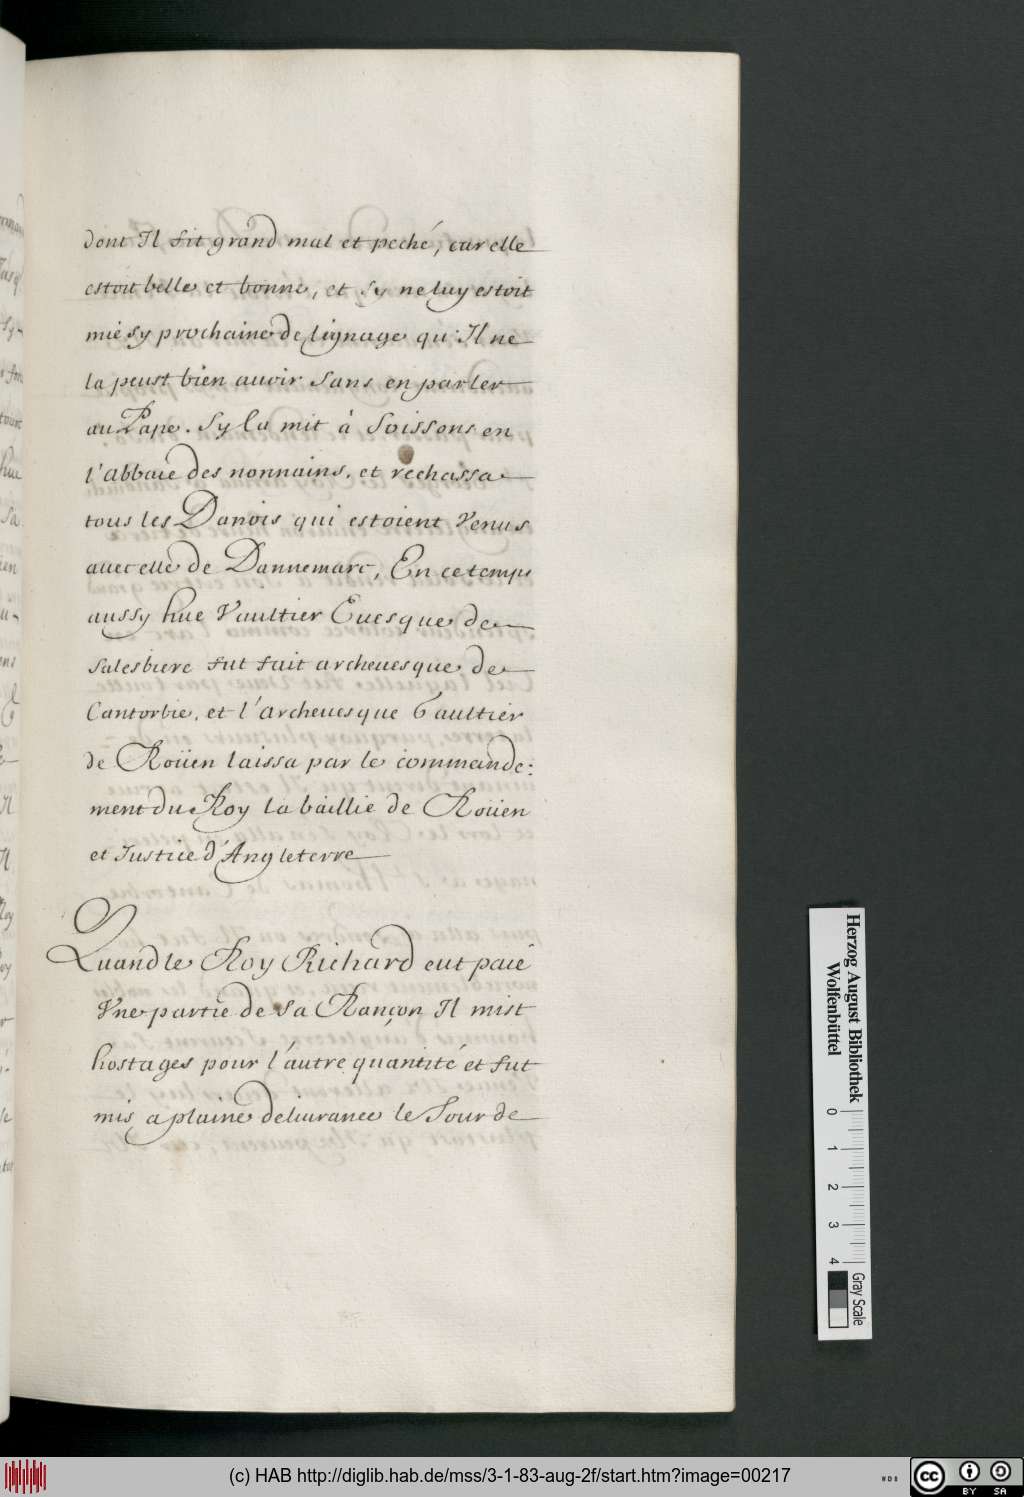 dont Il fit grand mal et peché, car elle
estoit belle et bonne, et sy ne luy estoit
mie sy prochaine de lignage qu'Il ne
la peust bien auoir sans en parler
au Pape. Sy la mit à Soissons en
l'abbaie des nonnains, et rechassa
tous les Danois qui estoient venus
auec elle de Dannemarc, En ce temps
aussy hue Vaultier Euesque de
salesbiere fut fait archeuesque de
Cantorbie, et l'Archeuesque Gaultier
de Roüen laissa par le commande:
ment du Roy la baillie de Roüen
et Justice d'Angleterre
Quand le Roy Richard eut paié
Vne partie de sa Rançon Il mist
hostages pour l'autre quantité et fut
mis a plaine deliurance le Jour de
Herzog August Bibliothek
Wolfenbüttel
0 1 2 3 4
Gray Scale
(c) HAB http://diglib.hab.de/mss/3-1-83-aug-2f/start.htm?image=00217
WDB
cc BY SA